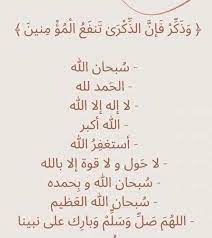 ﴿ وَذَكِّرْ فَإِنَّ الذِّكْرَىٰ تَنفَعُ الْمُؤْمِنينَ ﴾
- سُبحان اللّٰه
- الحَمد لله
- لا إله إلا اللّٰه
- اللّٰه أكبر
- أستغفِرُ اللّٰه
- لا حَول و لا قوة إلا بالله
- سُبحان اللّٰه و بِحمده
- سُبحان اللّٰه العَظيم
- اللهُمَ صَلِّ وَسَلِّمْ وَبارِك على نبينا